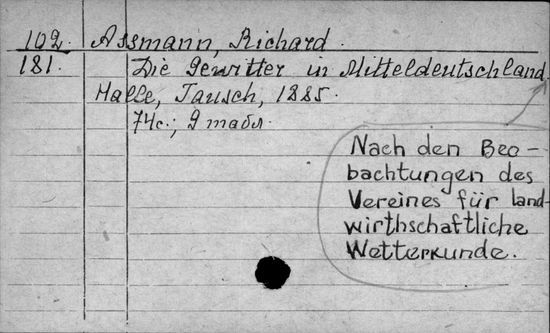 102. Assmann, Richard.
181. Die Gewitter in Mitteldeutschland.
Halle, Tausch, 1885.
74с.; 9 табл.
Nach den Beo-
bachtungen des
Vereines für land-
wirthschaftliche
Wetterkunde.